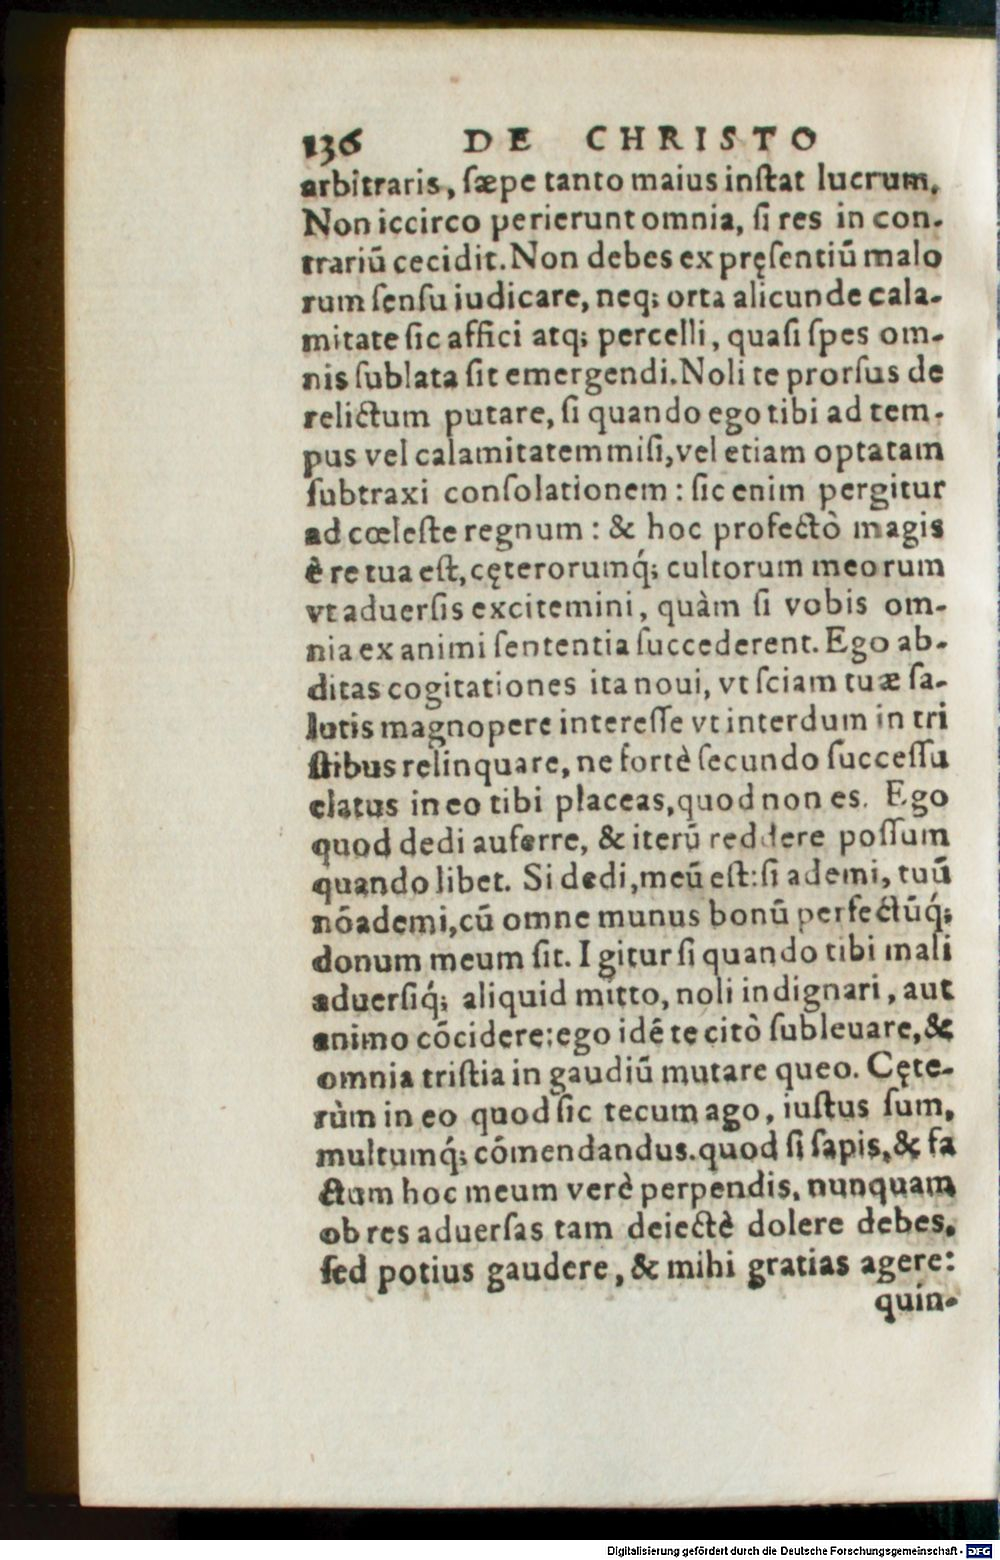 136 DE CHRISTO
arbitraris, sæpe tanto maius instat lucrum.
Non iccirco perierunt omnia, si res in con-
trariū cecidit. Non debes ex pręsentiū malo
rum sensu iudicare, neq; orta alicunde cala-
mitate sic affici atq; percelli, quasi spes om-
nis sublata sit emergendi. Noli te prorsus de
relictum putare, si quando ego tibi ad tem-
pus vel calamitatem misi, vel etiam optatam
subtraxi consolationem : sic enim pergitur
ad cœleste regnum : & hoc profectò magis
è re tua est, cęterorumq́; cultorum meorum
vt aduersis excitemini, quàm si vobis om-
nia ex animi sententia succederent. Ego ab-
ditas cogitationes ita noui, vt sciam tuæ sa-
lutis magnopere interesse vt interdum in tri
stibus relinquare, ne fortè secundo successu
elatus in eo tibi placeas, quod non es. Ego
quod dedi auferre, & iterū reddere possum
quando libet. Si dedi, meū est: si ademi, tuū
nō ademi, cū omne munus bonū perfectūq́;
donum meum sit. Igitur si quando tibi mali
aduersiq́; aliquid mitto, noli indignari, aut
animo cōcidere: ego idē te citò subleuare, &
omnia tristia in gaudiū mutare queo. Cęte-
rùm in eo quod sic tecum ago, iustus sum,
multumq́; cōmendandus. quod si sapis, & fa
ctum hoc meum verè perpendis, nunquam
ob res aduersas tam deiectè dolere debes,
sed potius gaudere, & mihi gratias agere:
quin-
Digitalisierung gefördert durch die Deutsche Forschungsgemeinschaft - DFG